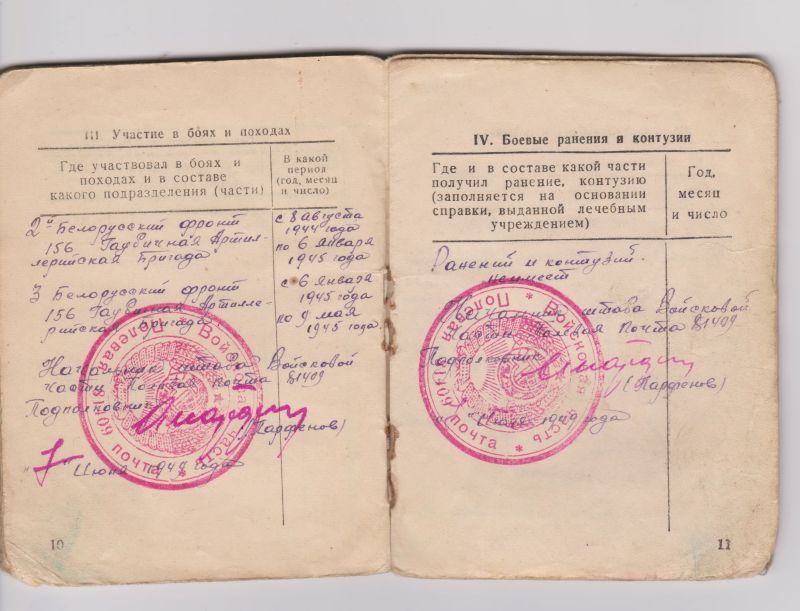 III Участие в боях и походах
Где участвовал в боях и
походах и в составе
какого подразделения (части)
В какой
период
(год, месяц
и число)
2й Белорусский фронт
156 Гаубичная Артил-
лерийская Бригада
с 8 августа
1944 года
по 6 января
1945 года
3 Белорусский фронт
156 Гаубичная Артилле-
рийская бригада
с 6 января
1945 года
по 9 мая
1945 года.
Начальник штаба Войсковой
части Полевая почта 81409
Подполковник
(Парфенов)
"7" Июня 1947 года
Войсковая часть * Полевая почта *
10
IV. Боевые ранения и контузии
Где и в составе какой части
получил ранение, контузию
(заполняется на основании
справки, выданной лечебным
учреждением)
Год,
месяц
и число
Ранений и контузий
неимеет
Начальник штаба Войсковой
Части Полевая Почта 81409
Подполковник
(Парфенов)
Июня 1947 года
Войсковая часть * Полевая почта *
11